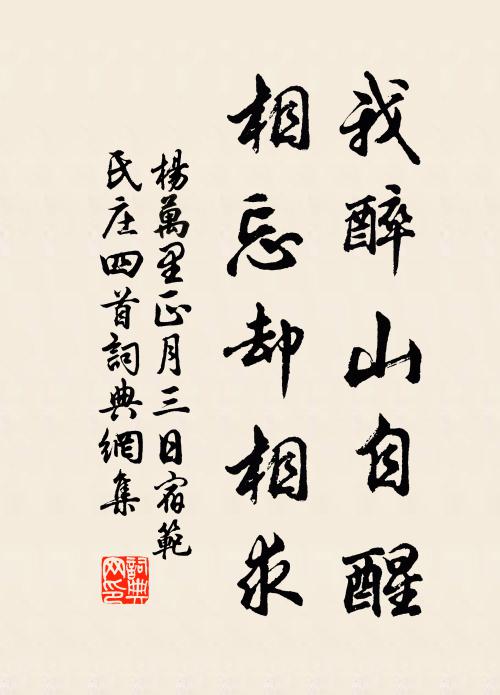 我醉山自醒
相忘却相求
楊萬里正月三日宿範
氏庄四首詞典網集
詞典网印